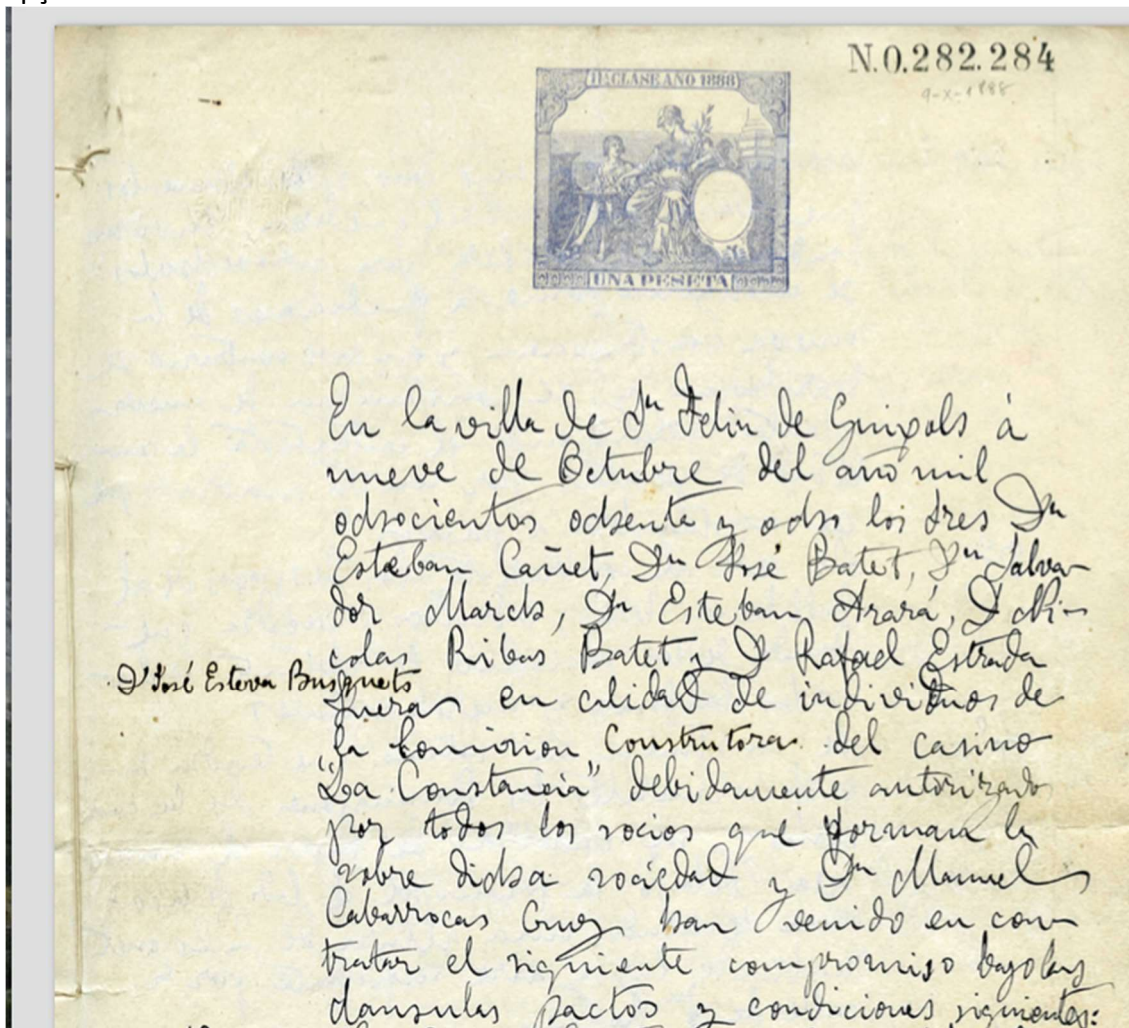 N.0.282.284
9-X-1888
11ª CLASE AÑO 1888
UNA PESETA
En la villa de Sn Feliu de Guixols á
nueve de Octubre del año mil
ochocientos ochenta y ocho los tres Dn
Esteban Cañet, Dn José Batet, Dn Salva-
dor March, Dn Esteban Arará, D Ni-
colas Ribas Batet y D Rafael Estrada
D José Esteva Busquets
en calidad de individuos de
la Comision Construtora del casino
"La Constancia" debidamente autorizados
por todos los socios que forman la
sobre dicha sociedad y Dn Manuel
Cabarrocas han venido en con
tratar el siguiente compromiso bajo las
clausulas pactos y condiciones siguientes: